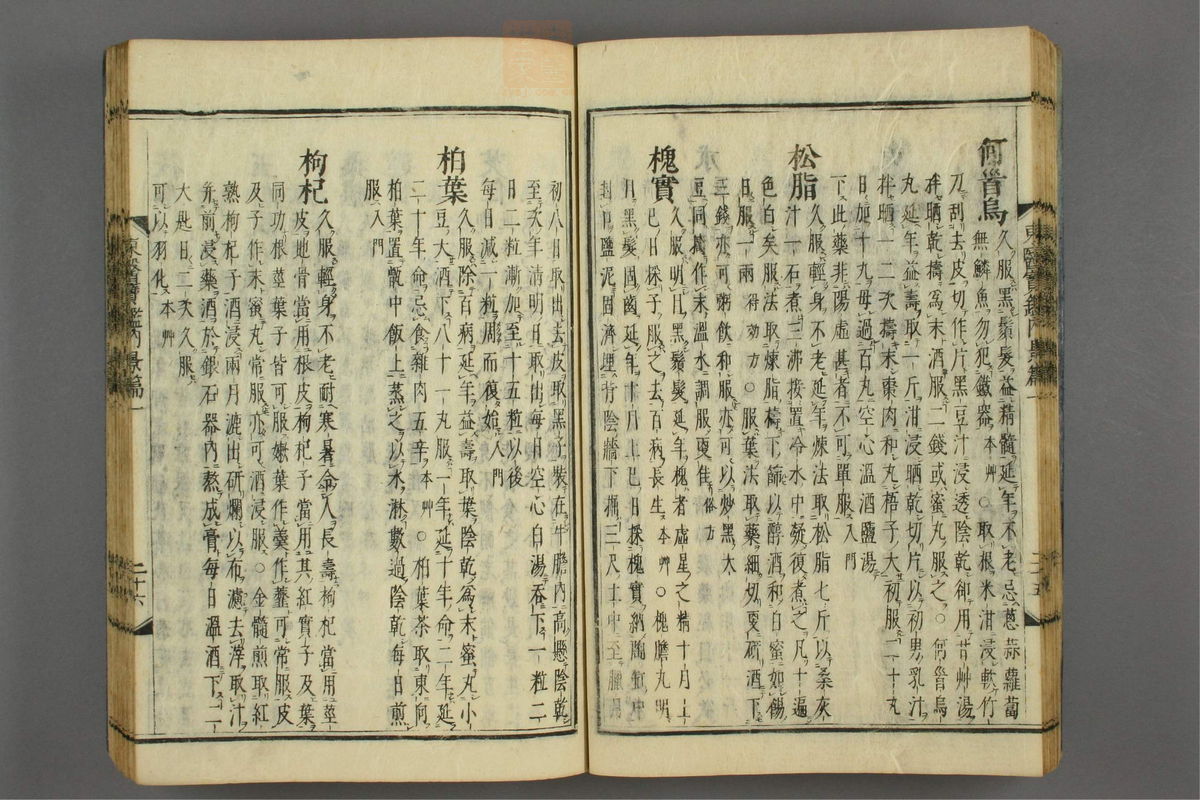 何首烏
久服黑鬚髮益精髓延年不老忌葱蒜蘿蔔
無鱗魚勿犯鐵器本艸○取根米泔浸軟竹
刀刮去皮切作片黑豆汁浸透陰乾却用甘艸湯
拌晒乾擣爲末酒服二錢或蜜丸服之○何首烏
丸延年益壽取一斤泔浸晒乾切片以初男乳汁
拌晒一二次擣末棗肉和丸梧子大初服二十丸
日加十丸毋過百丸空心溫酒鹽湯
下此藥非陽虛甚者不可單服入門
松脂
久服輕身不老延年煉法取松脂七斤以桑灰
汁一石煮三沸接置冷水中凝復煮之凡十遍
色白矣服法取煉脂擣下篩以醇酒和白蜜如餳
日服一兩得効方○服葉法取葉細切更硏酒下
三錢亦可粥飮和服亦可以炒黑大
豆同擣作末溫水調服更佳俗方
槐實
久服明目黑鬚髮延年槐者虛星之精十月上
巳日採子服之去百病長生本艸○槐膽丸明
目黑髮固齒延年十月上巳日採槐實納陶缸中
封口鹽泥固濟埋背陰墻下掘三尺土中至臘月
初八日取出去皮取黑子裝在牛膽內高懸陰乾
至次年淸明日取出每日空心白湯呑下一粒二
日二粒漸加至十五粒以後
每日減一粒周而復始入門
柏葉
久服除百病延年益壽取葉陰乾爲末蜜丸小
豆大酒下八十一丸服一年延十年命二年延
二十年命忌食雜肉五辛本艸○柏葉茶取東向
柏葉置甑中飯上蒸之以水淋數過陰乾每日煎
服入門
枸杞
久服輕身不老耐寒暑令人長壽枸杞當用莖
皮地骨當用根皮枸杞子當用其紅實子及葉
同功根莖葉子皆可服嫩葉作羹作虀可常服皮
及子作末蜜丸常服亦可酒浸服○金髓煎取紅
熟枸杞子酒浸兩月漉出硏爛以布濾去滓取汁
幷前浸藥酒於銀石器內熬成膏每日溫酒下二
大匙日二次久服
可以羽化本艸
東醫寶鑑內景篇一
二十六